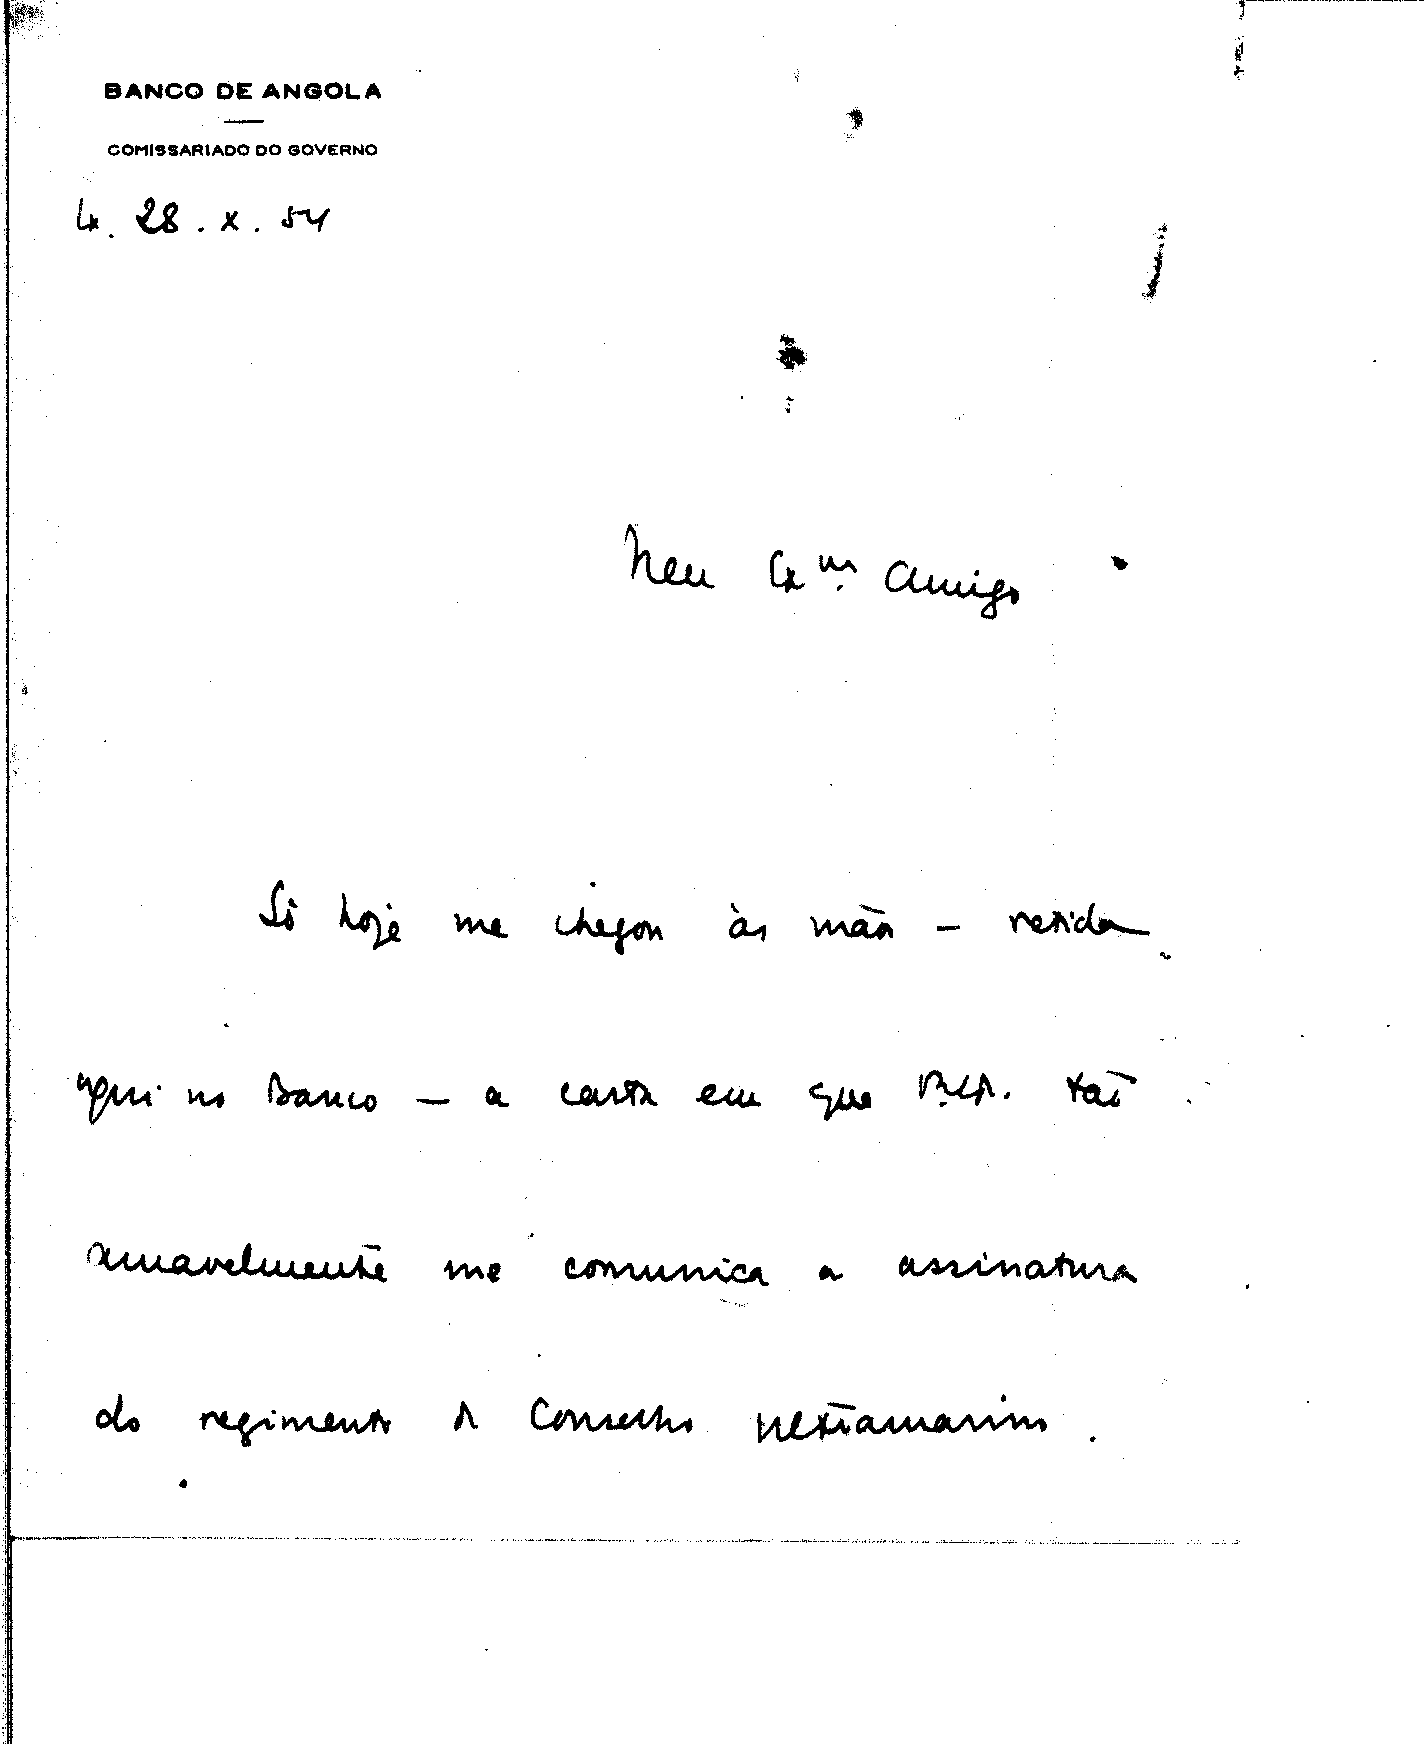 BANCO DE ANGOLA
COMISSARIADO DO GOVERNO
Lx. 28. X. 54
Meu Exmo. Amigo
Só hoje me chegou às mãos – retida
aqui no Banco – a carta em que V. Exa. tão
amavelmente me comunica a assinatura
do regimento do Conselho Ultramarino.